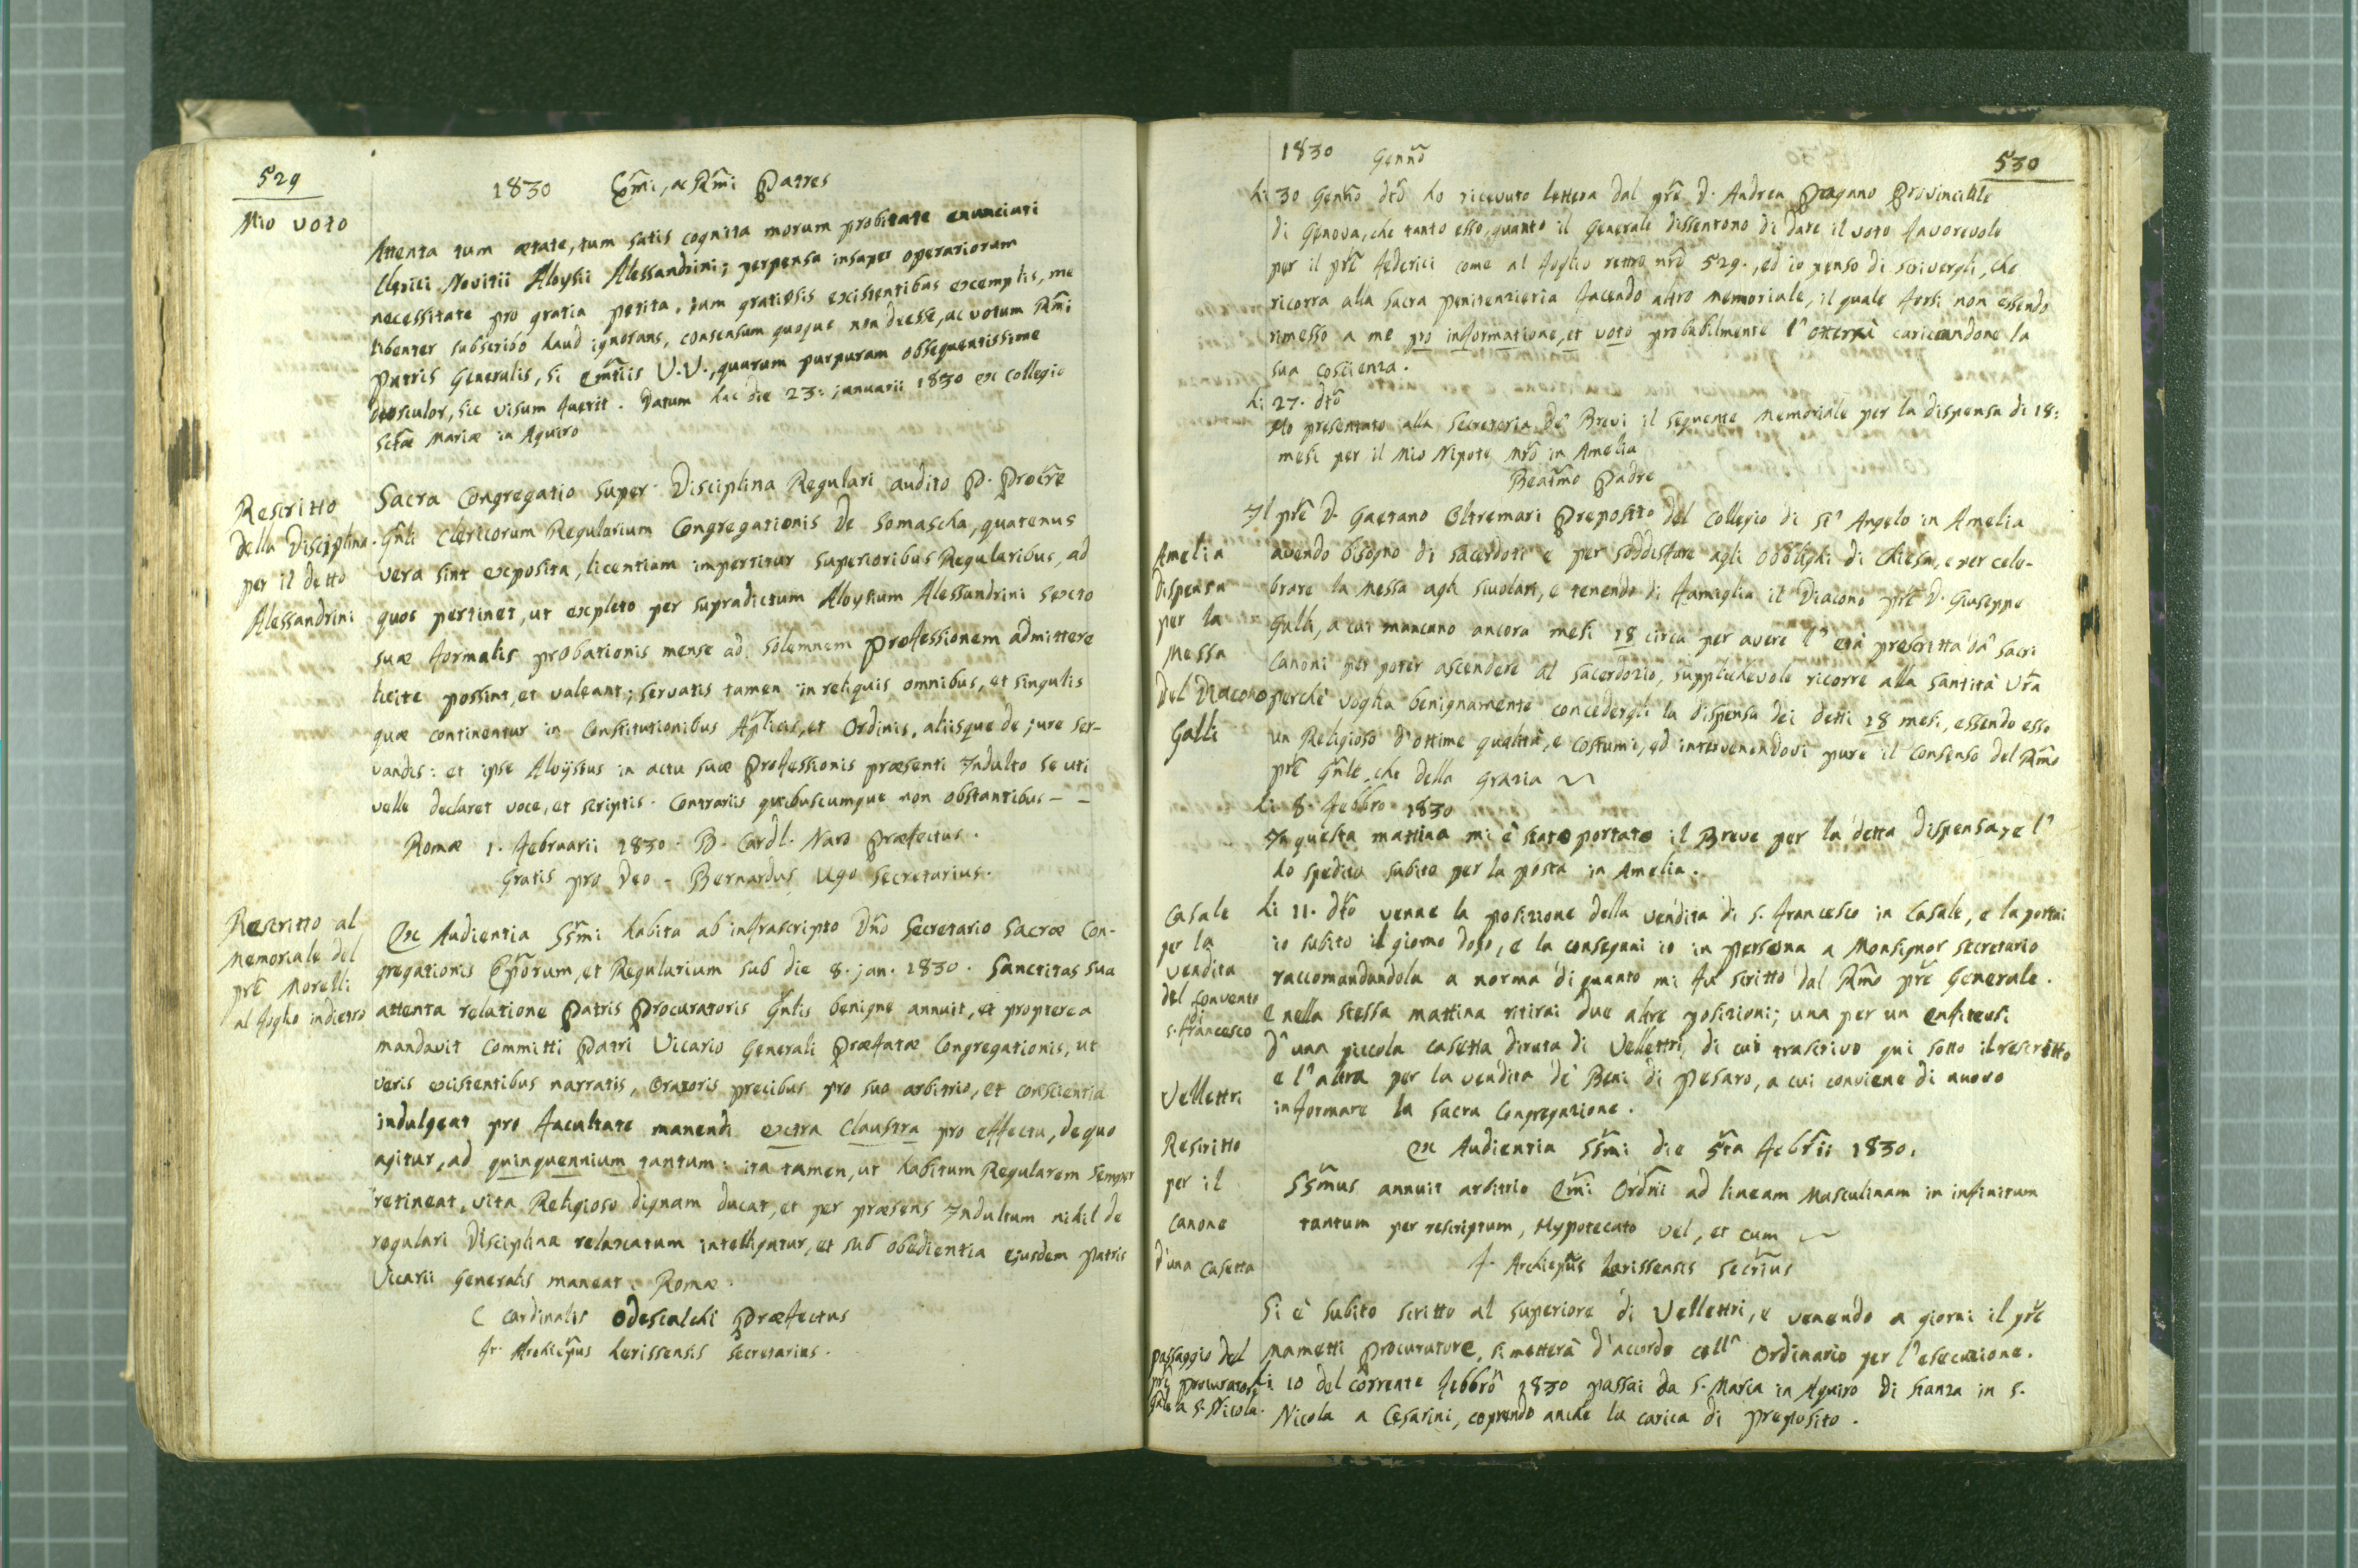 529
1830 Emi, ac Rmi Patres
Mio voto
Attenta tum ætate, tum satis cognita morum probitate enunciati
Clerici Novitii Aloysii Alessandrini; perpensa insuper operariorum
necessitate pro gratia petita, tum gratiosis existentibus exemplis, me
libenter subscribo haud ignorans, consensum quoque non deesse, ac votum Rmi
Patris Generalis, si Emtiis V.V., quarum purpuram obsequentissime
deosculor, sic visum fuerit. Datum hac die 23: januarii 1830 ex Collegio
Sctæ Mariæ in Aquiro
Rescritto
della Disciplina
per il detto
Alessandrini
Sacra Congregatio super Disciplina Regulari audito P. Procre
Gnli Clericorum Regularium Congregationis de Somascha, quatenus
vera sint exposita, licentiam impertitur Superioribus Regularibus, ad
quos pertinet, ut expleto per supradictum Aloysium Alessandrini sexto
suæ formalis probationis mense ad solemnem Professionem admittere
licite possint, et valeant; servatis tamen in reliquis omnibus, et singulis
quæ continentur in Constitutionibus Aplicis, et Ordinis, aliisque de jure ser-
vandis: et ipse Aloysius in actu suæ Professionis præsenti Indulto se uti
velle declaret voce, et scriptis. Contrariis quibuscumque non obstantibus - -
Romæ 1. Februarii 1830. B. Cardl. Naro Præfectus.
Gratis pro Deo - Bernardus Ugo Secretarius.
Rescritto al
Memoriale del
pre Morelli
al foglio indietro
Ex Audientia SSmi habita ab infrascripto Dno Secretario Sacræ Con-
gregationis Eporum, et Regularium sub die 8. jan. 1830. Sanctitas sua
attenta relatione Patris Procuratoris Gnlis benigne annuit, et propterea
mandavit committi Patri Vicario Generali Præfatæ Congregationis, ut
veris existentibus narratis, Oratoris precibus pro suo arbitrio, et conscientia
indulgeat pro facultate manendi extra claustra pro effectu, de quo
agitur, ad quinquennium tantum: ita tamen, ut habitum Regularem semper
retineat, vita Religioso dignam ducat, et per præsens Indultum nihil de
regulari Disciplina relaxatum intelligatur, et sub obedientia ejusdem Patris
Vicarii Generalis maneat. Romæ.
C Cardinalis Odescalchi Præfectus
Fr. Archiepus Larissensis Secretarius.
1830 Genno
530
Li 30 Genno dto ho ricevuto lettera dal pre D. Andrea Pagano Provinciale
di Genova, che tanto esso, quanto il Generale dissentono di dare il voto favorevole
per il pre Federici come al foglio retro nro 529., ed io penso di scrivergli, che
ricorra alla Sacra Penitenzieria facendo altro memoriale, il quale forsi non essendo
rimesso a me pro informatione, et voto probabilmente l'otterrà caricandone la
sua coscienza.
Li 27. dto
Ho presentato alla Secreteria de' Brevi il seguente Memoriale per la dispensa di 18:
mesi per il Mio Nipote nro in Amelia
Beatmo Padre
Amelia
Dispensa
per la
Messa
del Diacono
Galli
Il pre D. Gaetano Oltremari Preposito del Collegio di St' Angelo in Amelia
avendo bisogno di sacerdoti e per soddisfare agli obblighi di Chiesa, e per cele-
brare la Messa agli scuolari, e tenendo di famiglia il Diacono pre D. Giuseppe
Galli, a cui mancano ancora mesi 18 circa per avere l' età prescritta da' sacri
Canoni per poter ascendere al sacerdozio, supplichevole ricorre alla Santità Vra
perchè voglia benignamente concedergli la dispensa dei detti 18 mesi, essendo esso
un Religioso d'ottime qualità, e costumi, ed intervenendovi pure il consenso del Rmo
pre Gnle, che della grazia
Li 8. Febbro 1830
In questa mattina mi è stato portato il Breve per la detta dispensa, e l'
ho spedito subito per la posta in Amelia.
Casale
per la
vendita
del convento
di
S. Francesco
Li 11. dto venne la posizione della vendita di S. Francesco in Casale, e la portai
io subito il giorno dopo, e la consegnai io in persona a Monsignor Secretario
raccomandandola a norma di quanto mi fu scritto dal Rmo pre Generale.
E nella stessa mattina ritirai due altre posizioni; una per un enfiteusi
d'una piccola casetta diruta di Vellettri, di cui trascrivo qui sotto il rescritto
e l'altra per la vendita de' Beni di Pesaro, a cui conviene di nuovo
informare la Sacra Congregazione.
Vellettri
Rescritto
per il
Canone
d'una casetta
Ex Audientia SSmi die 5ta Febrii 1830.
SSmus annuit arbitrio Emi Ordni ad lineam Masculinam in infinitum
tantum per rescriptum, Hypotecato vel, et cum
F. Archiepus Larissensis Secrius
Si è subito scritto al superiore di Vellettri, e venendo a giorni il pre
Mametti Procuratore, si metterà d'accordo coll' Ordinario per l'esecuzione.
passaggio del
pre Procuratore
Gnle a S. Nicola.
Li 10 del corrente Febbro 1830 passai da S. Maria in Aquiro di stanza in S.
Nicola a Cesarini, coprendo anche la carica di Preposito.